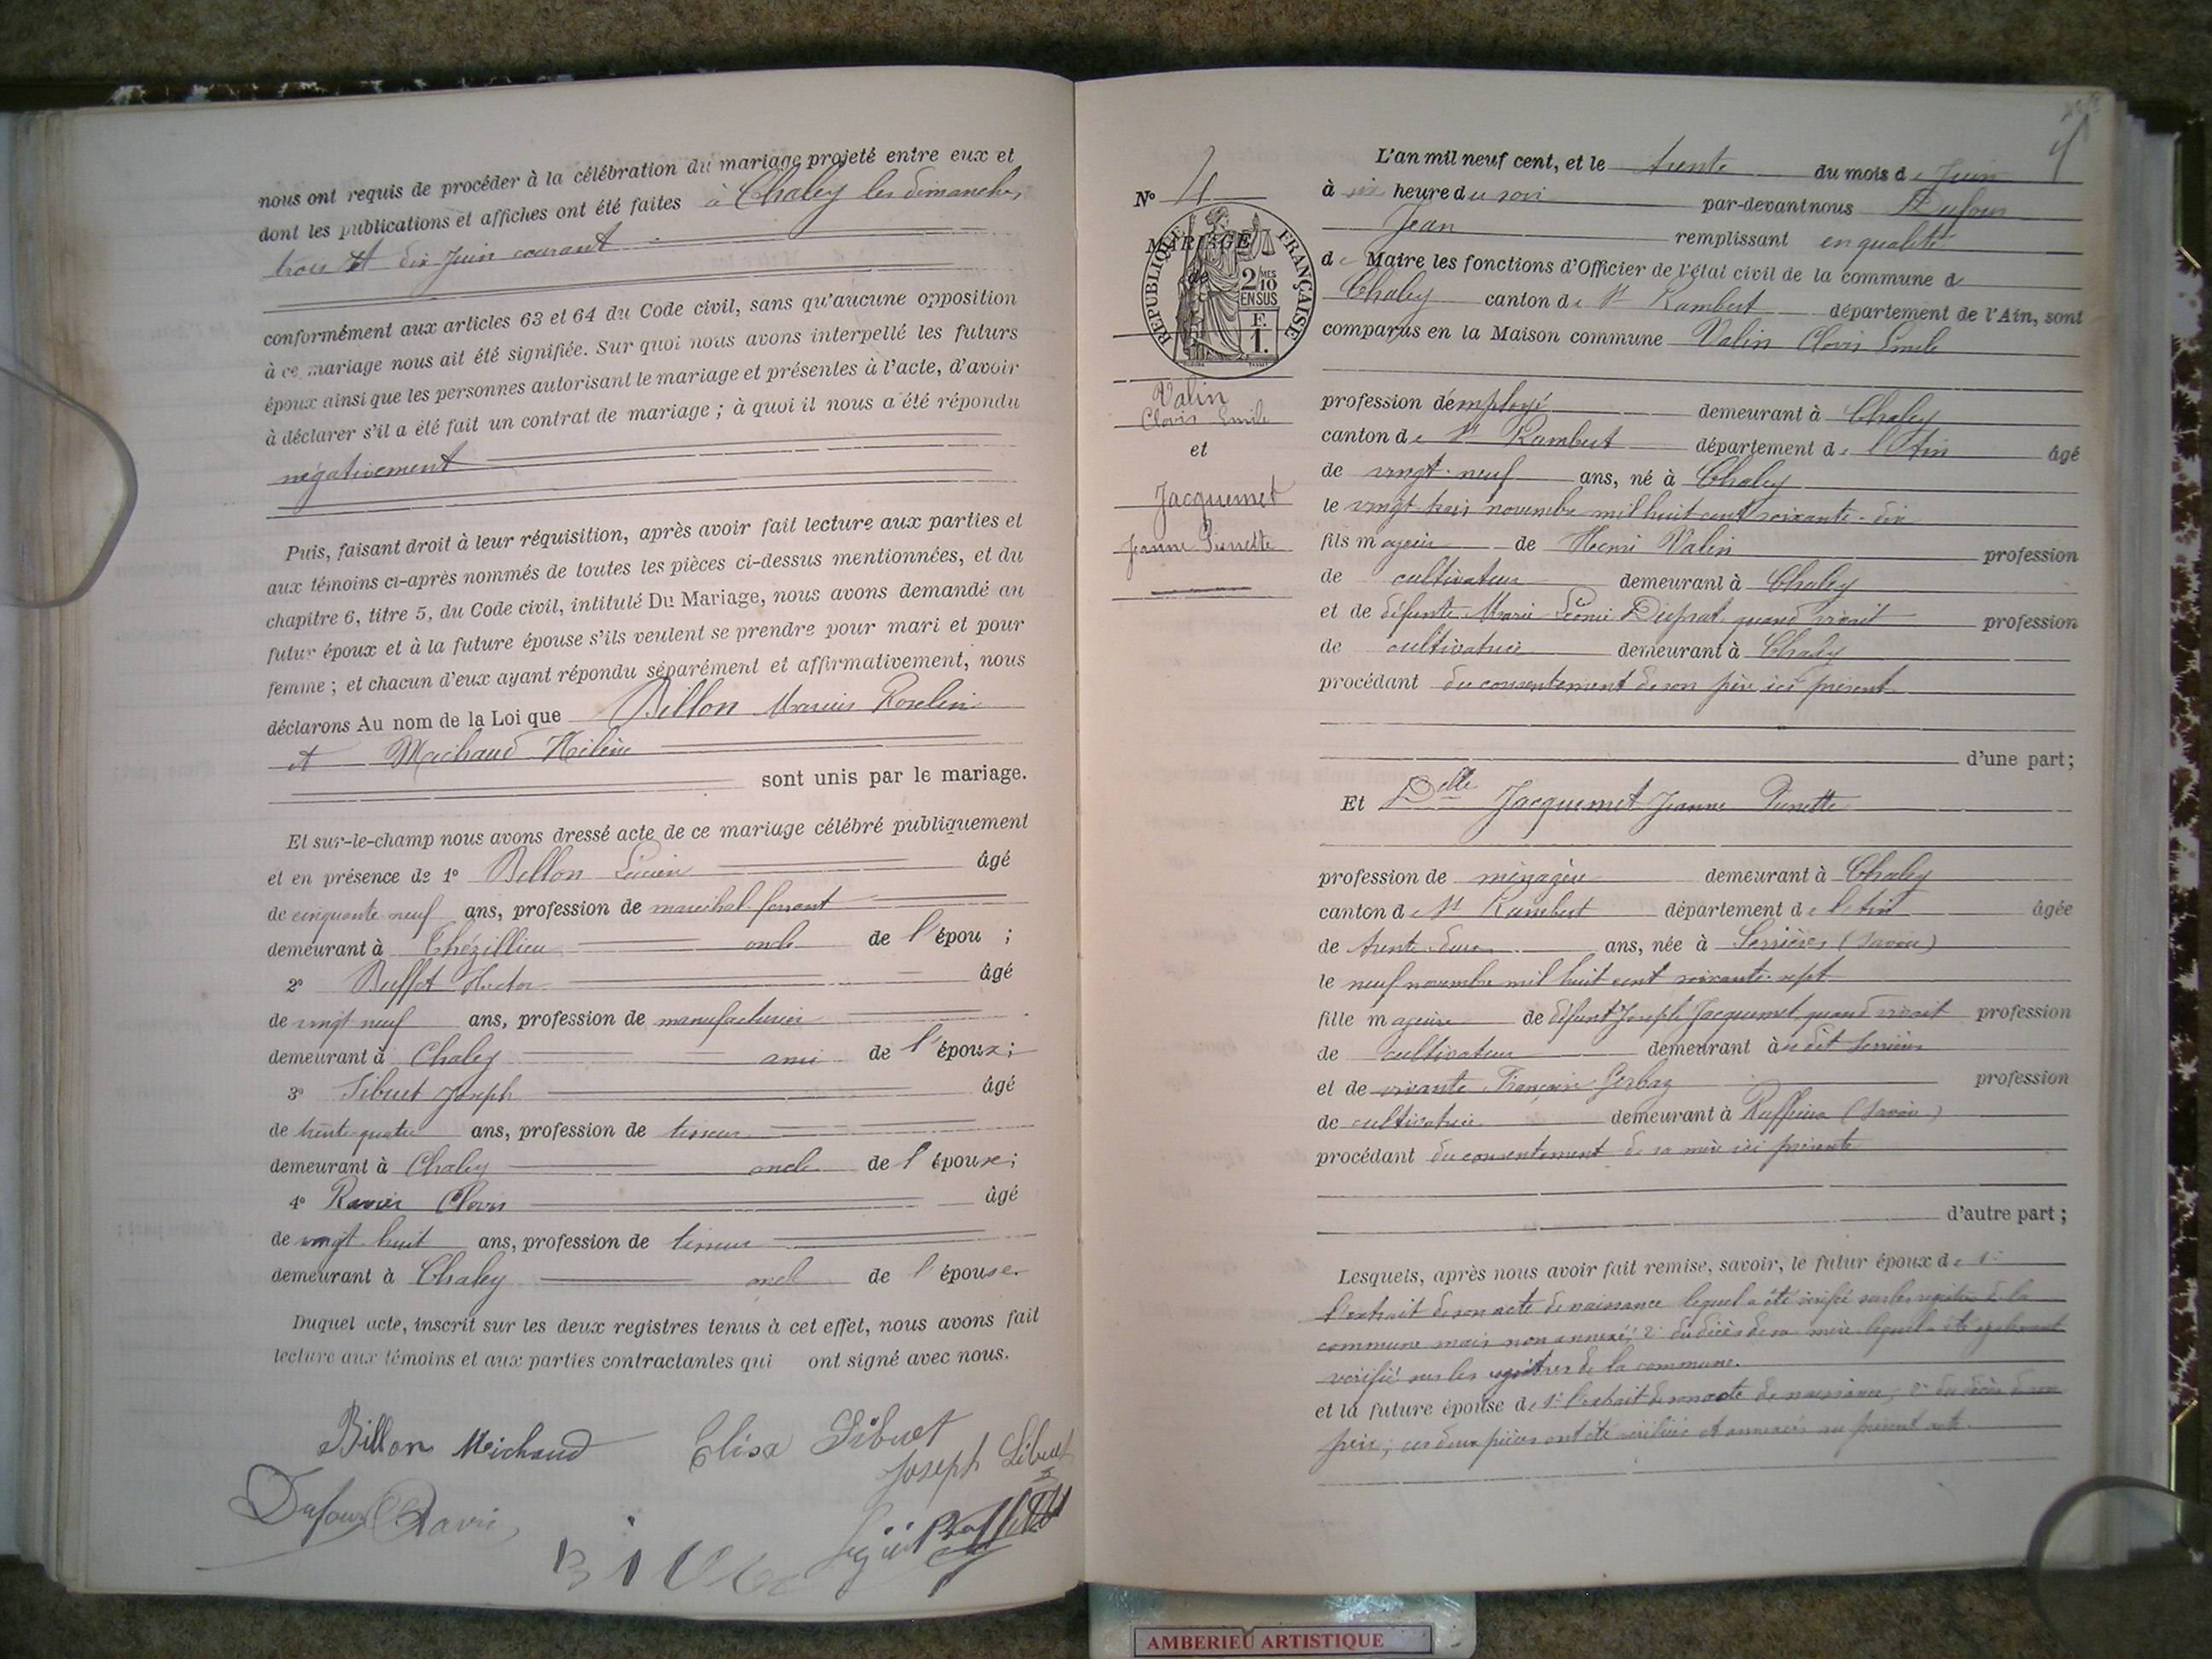 nous ont requis de procéder à la célébration du mariage projeté entre eux et
dont les publications et affiches ont été faites à Chaley les dimanches
trois et dix Juin courant
conformément aux articles 63 et 64 du Code civil, sans qu'aucune opposition
à ce mariage nous ait été signifiée. Sur quoi nous avons interpellé les futurs
époux ainsi que les personnes autorisant le mariage et présentes à l'acte, d'avoir
à déclarer s'il a été fait un contrat de mariage ; à quoi il nous a été répondu
négativement
Puis, faisant droit à leur réquisition, après avoir fait lecture aux parties et
aux témoins ci-après nommés de toutes les pièces ci-dessus mentionnées, et du
chapitre 6, titre 5, du Code civil, intitulé Du Mariage, nous avons demandé au
futur époux et à la future épouse s'ils veulent se prendre pour mari et pour
femme ; et chacun d'eux ayant répondu séparément et affirmativement, nous
déclarons Au nom de la Loi que Billon Marius Roselin
et Michaud Hélène
sont unis par le mariage.
Et sur-le-champ nous avons dressé acte de ce mariage célébré publiquement
et en présence de 1° Billon Lucien âgé
de cinquante neuf ans, profession de maréchal ferrant
demeurant à Thézillieu oncle de l'épou ;
2° Buffet Hector âgé
de vingt neuf ans, profession de manufacturier
demeurant à Chaley ami de l'époux ;
3° Sibuet Joseph âgé
de trente-quatre ans, profession de tisseur
demeurant à Chaley oncle de l'épouse ;
4° Ravier Clovis âgé
de vingt-huit ans, profession de tisseur
demeurant à Chaley oncle de l'épouse
Duquel acte, inscrit sur les deux registres tenus à cet effet, nous avons fait
lecture aux témoins et aux parties contractantes qui ont signé avec nous.
Billon Michaud Elisa Sibuet
Joseph Sibuet
Dufour
N° 4
MARIAGE
de
RÉPUBLIQUE FRANÇAISE
2/10 MES
EN SUS
F.
1.
Valin
Clovis Emile
et
Jacquemet
Jeanne Pierrette
L'an mil neuf cent, et le trente du mois de Juin
à six heure du soir par-devant nous Dufour
Jean remplissant en qualité
de Maire les fonctions d'Officier de l'état civil de la commune de
Chaley canton de St Rambert département de l'Ain, sont
comparus en la Maison commune Valin Clovis Emile
profession d'employé demeurant à Chaley
canton de St Rambert département de l'Ain âgé
de vingt-neuf ans, né à Chaley
le vingt trois novembre mil huit cent soixante-dix
fils majeur de Henri Valin profession
de cultivateur demeurant à Chaley
et de défunte Marie Léonie Duprat quand vivait profession
de cultivatrice demeurant à Chaley
procédant du consentement de son père ici présent
d'une part ;
Et Delle Jacquemet Jeanne Pierrette
profession de ménagère demeurant à Chaley
canton de St Rambert département de l'Ain âgée
de trente-deux ans, née à Serrières (Savoie)
le neuf novembre mil huit cent soixante-sept
fille majeure de défunt Joseph Jacquemet quand vivait profession
de cultivateur demeurant à u dit Serrières
et de vivante Françoise Gerbaz profession
de cultivatrice demeurant à Ruffieux (Savoie)
procédant du consentement de sa mère ici présente
d'autre part ;
Lesquels, après nous avoir fait remise, savoir, le futur époux de 1°
l'extrait de son acte de naissance lequel a été vérifié sur les registres de la
commune mais non annexé ; 2° du décès de sa mère lequel a été également
vérifié sur les registres de la commune.
et la future épouse de 1° l'extrait de son acte de naissance ; 2° du décès de son
père ; ces deux pièces ont été vérifiées et annexées au présent acte.
AMBERIEU ARTISTIQUE